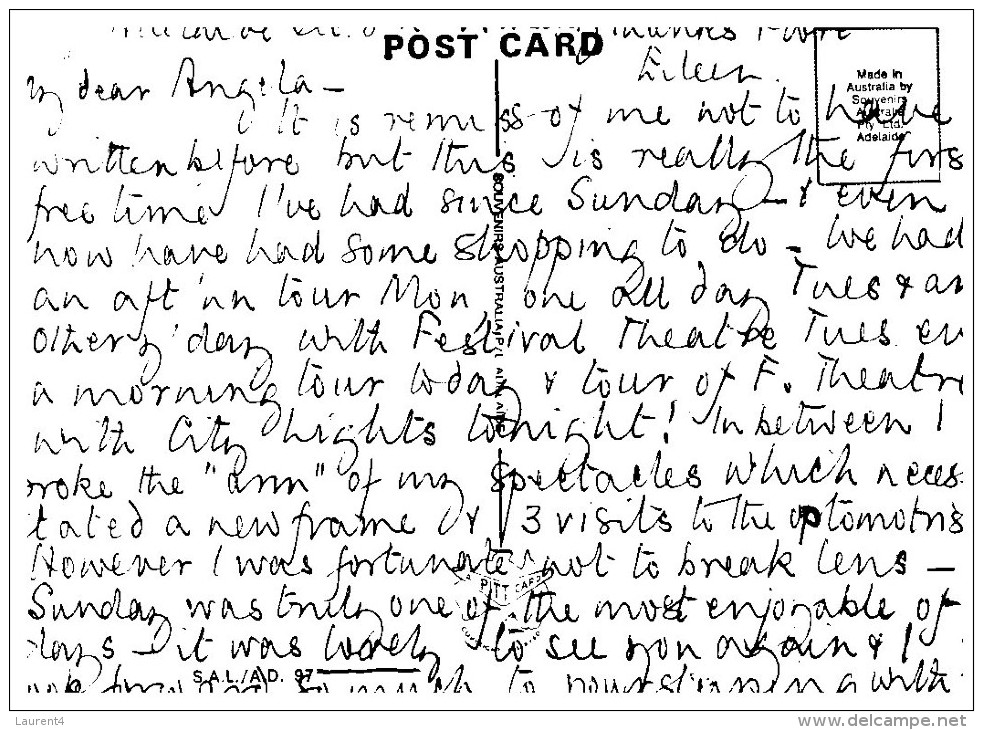 thanks
POST CARD
Eileen.
Made in
Australia by
Souvenirs
Australia
Pty. Ltd.
Adelaide
dear Angela —
It is remiss of me not to have
written before but this is really the firs
free time I've had since Sunday — & even
now have had some shopping to do — We had
an aft'nn tour Mon one all day Tues & an
other ½ day with Festival Theatre Tues ev
a morning tour today & tour of F. Theatre
with City Lights tonight! In between I
roke the "arm" of my spectacles which neces-
tated a new frame & 3 visits to the optomotris
However I was fortunate not to break lens —
Sunday was truly one of the most enjoyable of
days — it was lovely to see you again & I
so much to your with
SOUVENIRS AUSTRALIA P/L ADELAIDE
PITT CARD
S.A.L./A.D. 97
Laurent4
delcampe.net